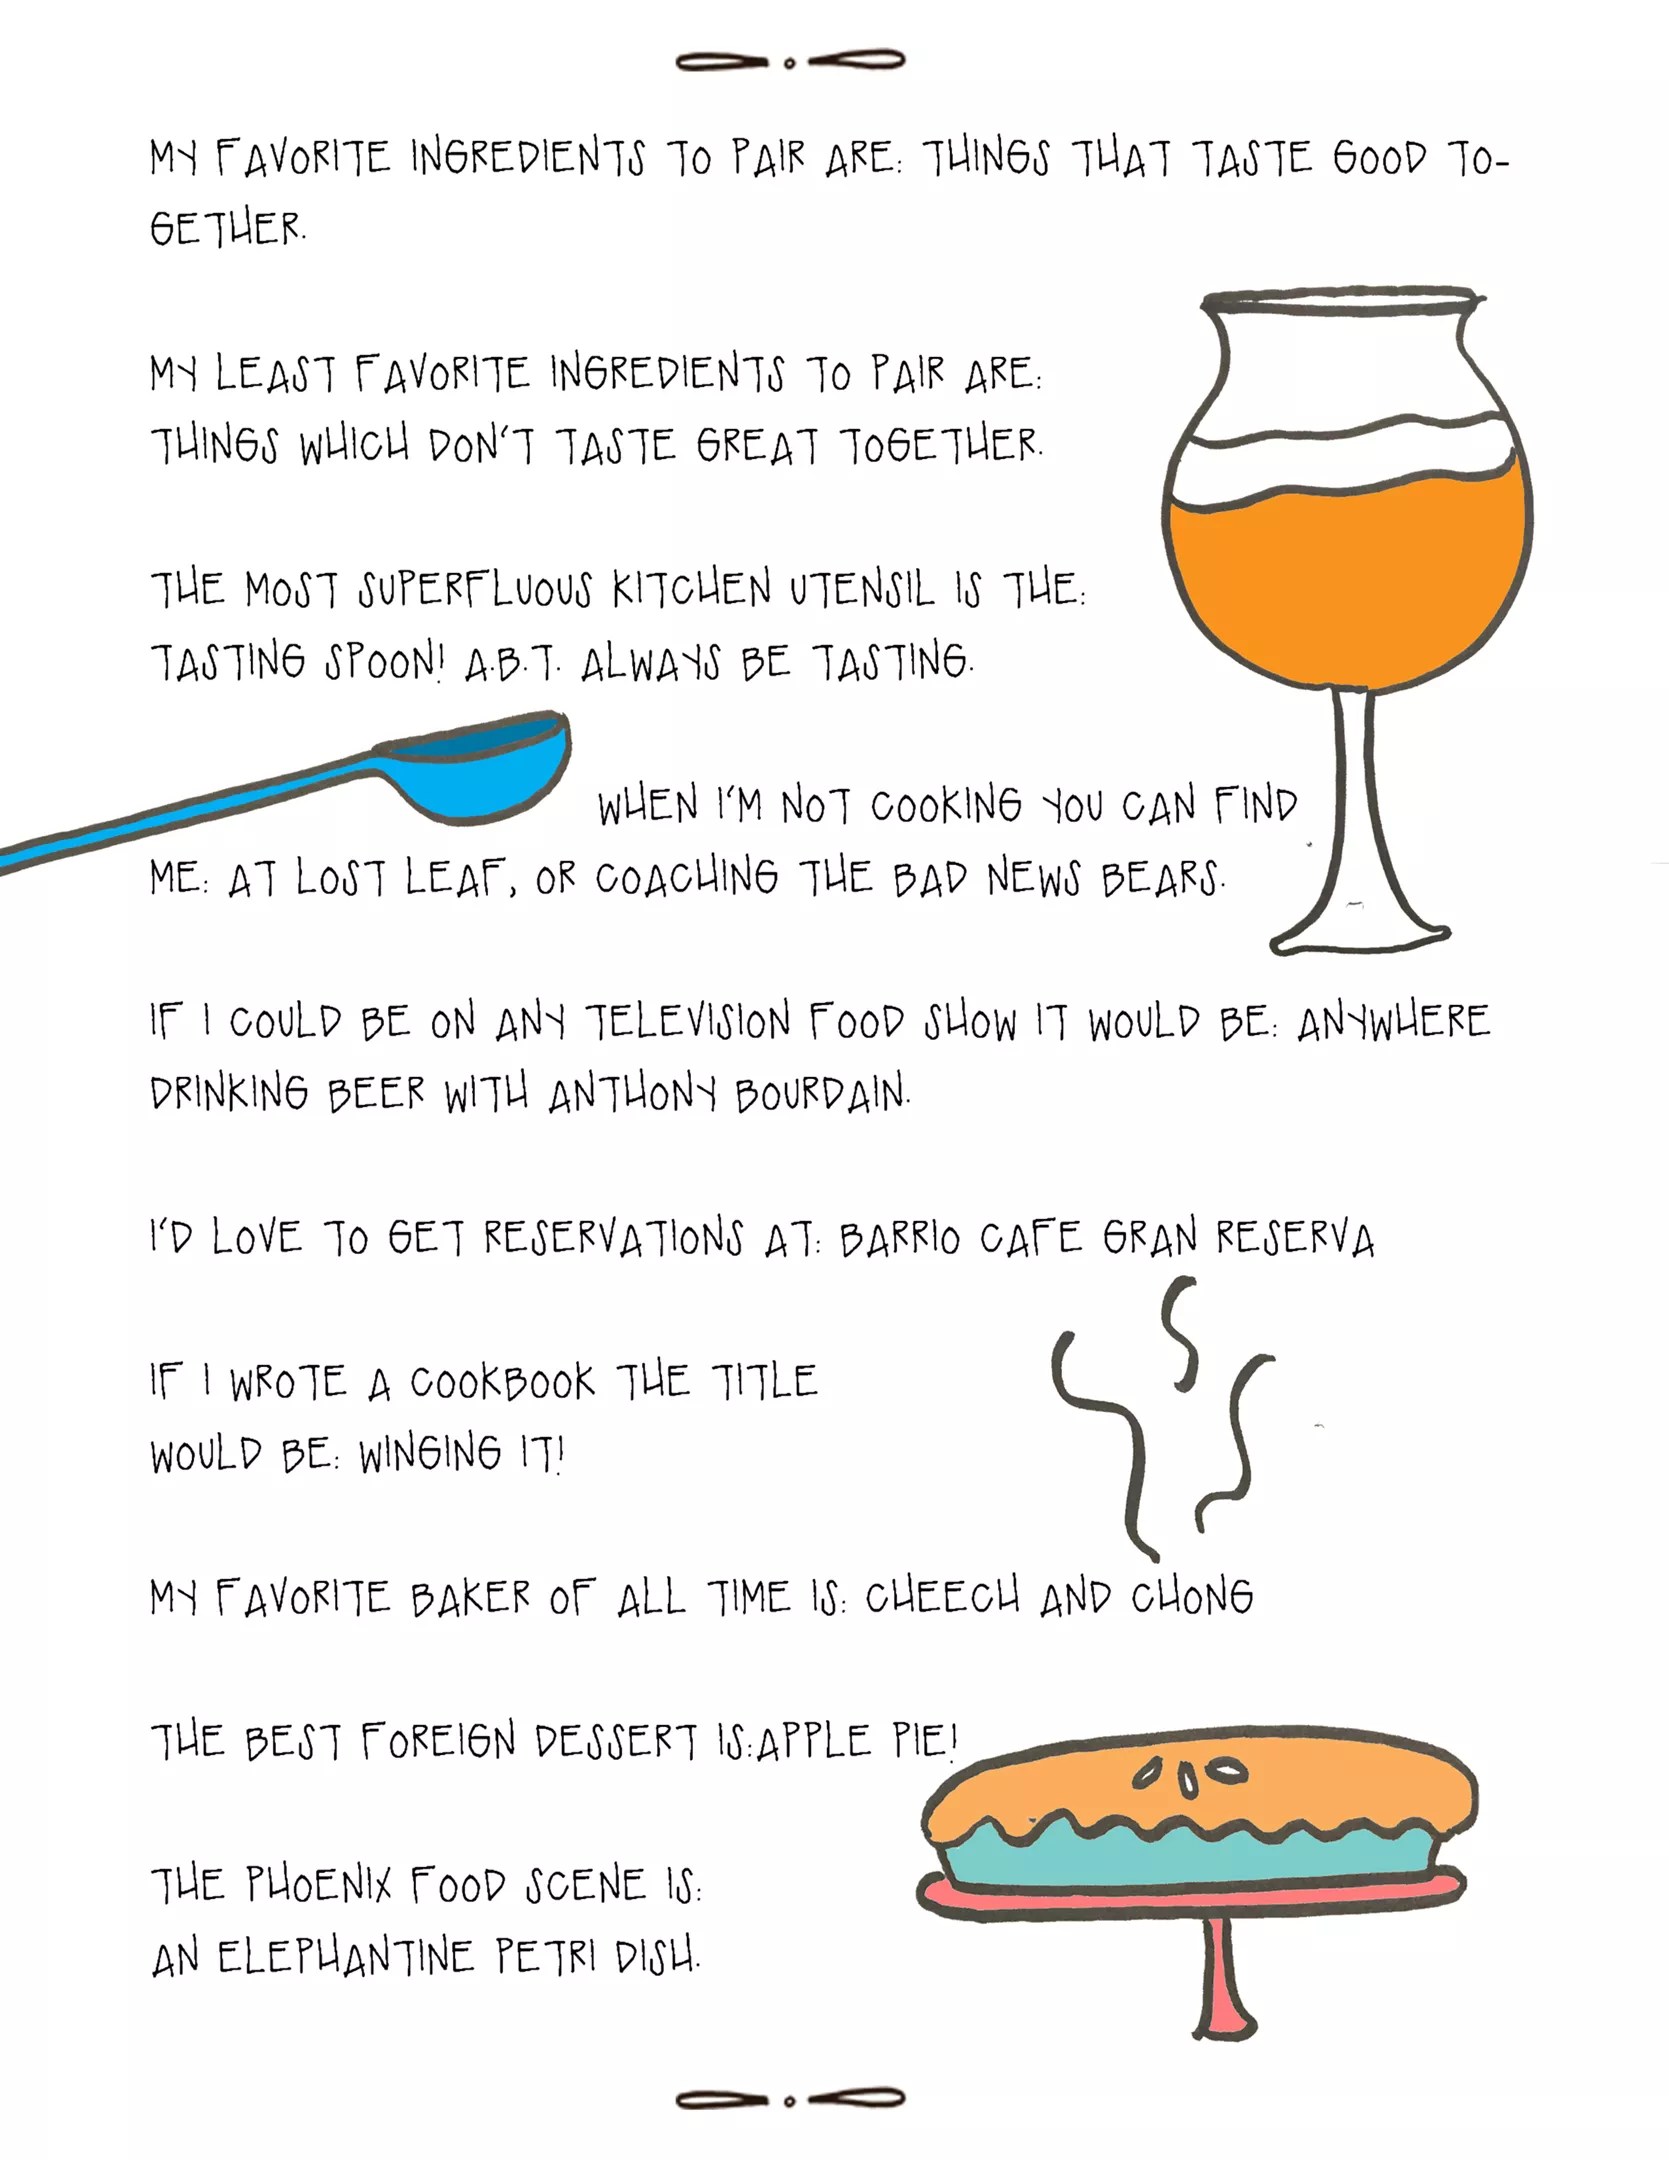 MY FAVORITE INGREDIENTS TO PAIR ARE: THINGS THAT TASTE GOOD TO-
GETHER.
MY LEAST FAVORITE INGREDIENTS TO PAIR ARE:
THINGS WHICH DON'T TASTE GREAT TOGETHER.
THE MOST SUPERFLUOUS KITCHEN UTENSIL IS THE:
TASTING SPOON! A.B.T. ALWAYS BE TASTING.
WHEN I'M NOT COOKING YOU CAN FIND
ME: AT LOST LEAF, OR COACHING THE BAD NEWS BEARS.
IF I COULD BE ON ANY TELEVISION FOOD SHOW IT WOULD BE: ANYWHERE
DRINKING BEER WITH ANTHONY BOURDAIN.
I'D LOVE TO GET RESERVATIONS AT: BARRIO CAFE GRAN RESERVA
IF I WROTE A COOKBOOK THE TITLE
WOULD BE: WINGING IT!
MY FAVORITE BAKER OF ALL TIME IS: CHEECH AND CHONG
THE BEST FOREIGN DESSERT IS:APPLE PIE!
THE PHOENIX FOOD SCENE IS:
AN ELEPHANTINE PETRI DISH.